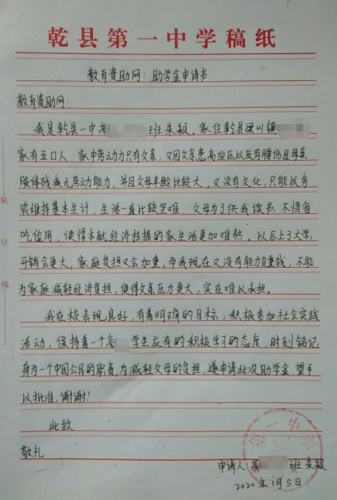 乾县第一中学稿纸
教育资助网：助学金申请书
教育资助网：
我是乾县一中高 班朱敏，家住乾县梁
家有五口人，家中劳动力只有父亲，又因父亲患高血压以及有腰伤且母亲
肢体残疾无劳动能力，并且父母年龄比较大，又没有文化，只能以务
农维持基本生计，生活一直比较艰难，父母为了供我读书，不惜省
吃俭用，使得本就经济拮据的家生活更加难熬。以后上了大学，
开销会更大，家庭负担又会加重，而我现在又没有能力赚钱，不能
为家庭减轻经济负担，使得父亲压力更大，实在难以承担。
我在校表现良好，有着明确的目标，积极参加社会实践
活动，保持着一个高 学生应有的积极学习的态度，时刻铭记
身为一个中国公民的职责，为减轻父母的负担，遂申请此次助学金，望予
以批准，谢谢！
此致
敬礼
第一中学
申请人：高 班 朱敏
2020年1月5日
装 订 线